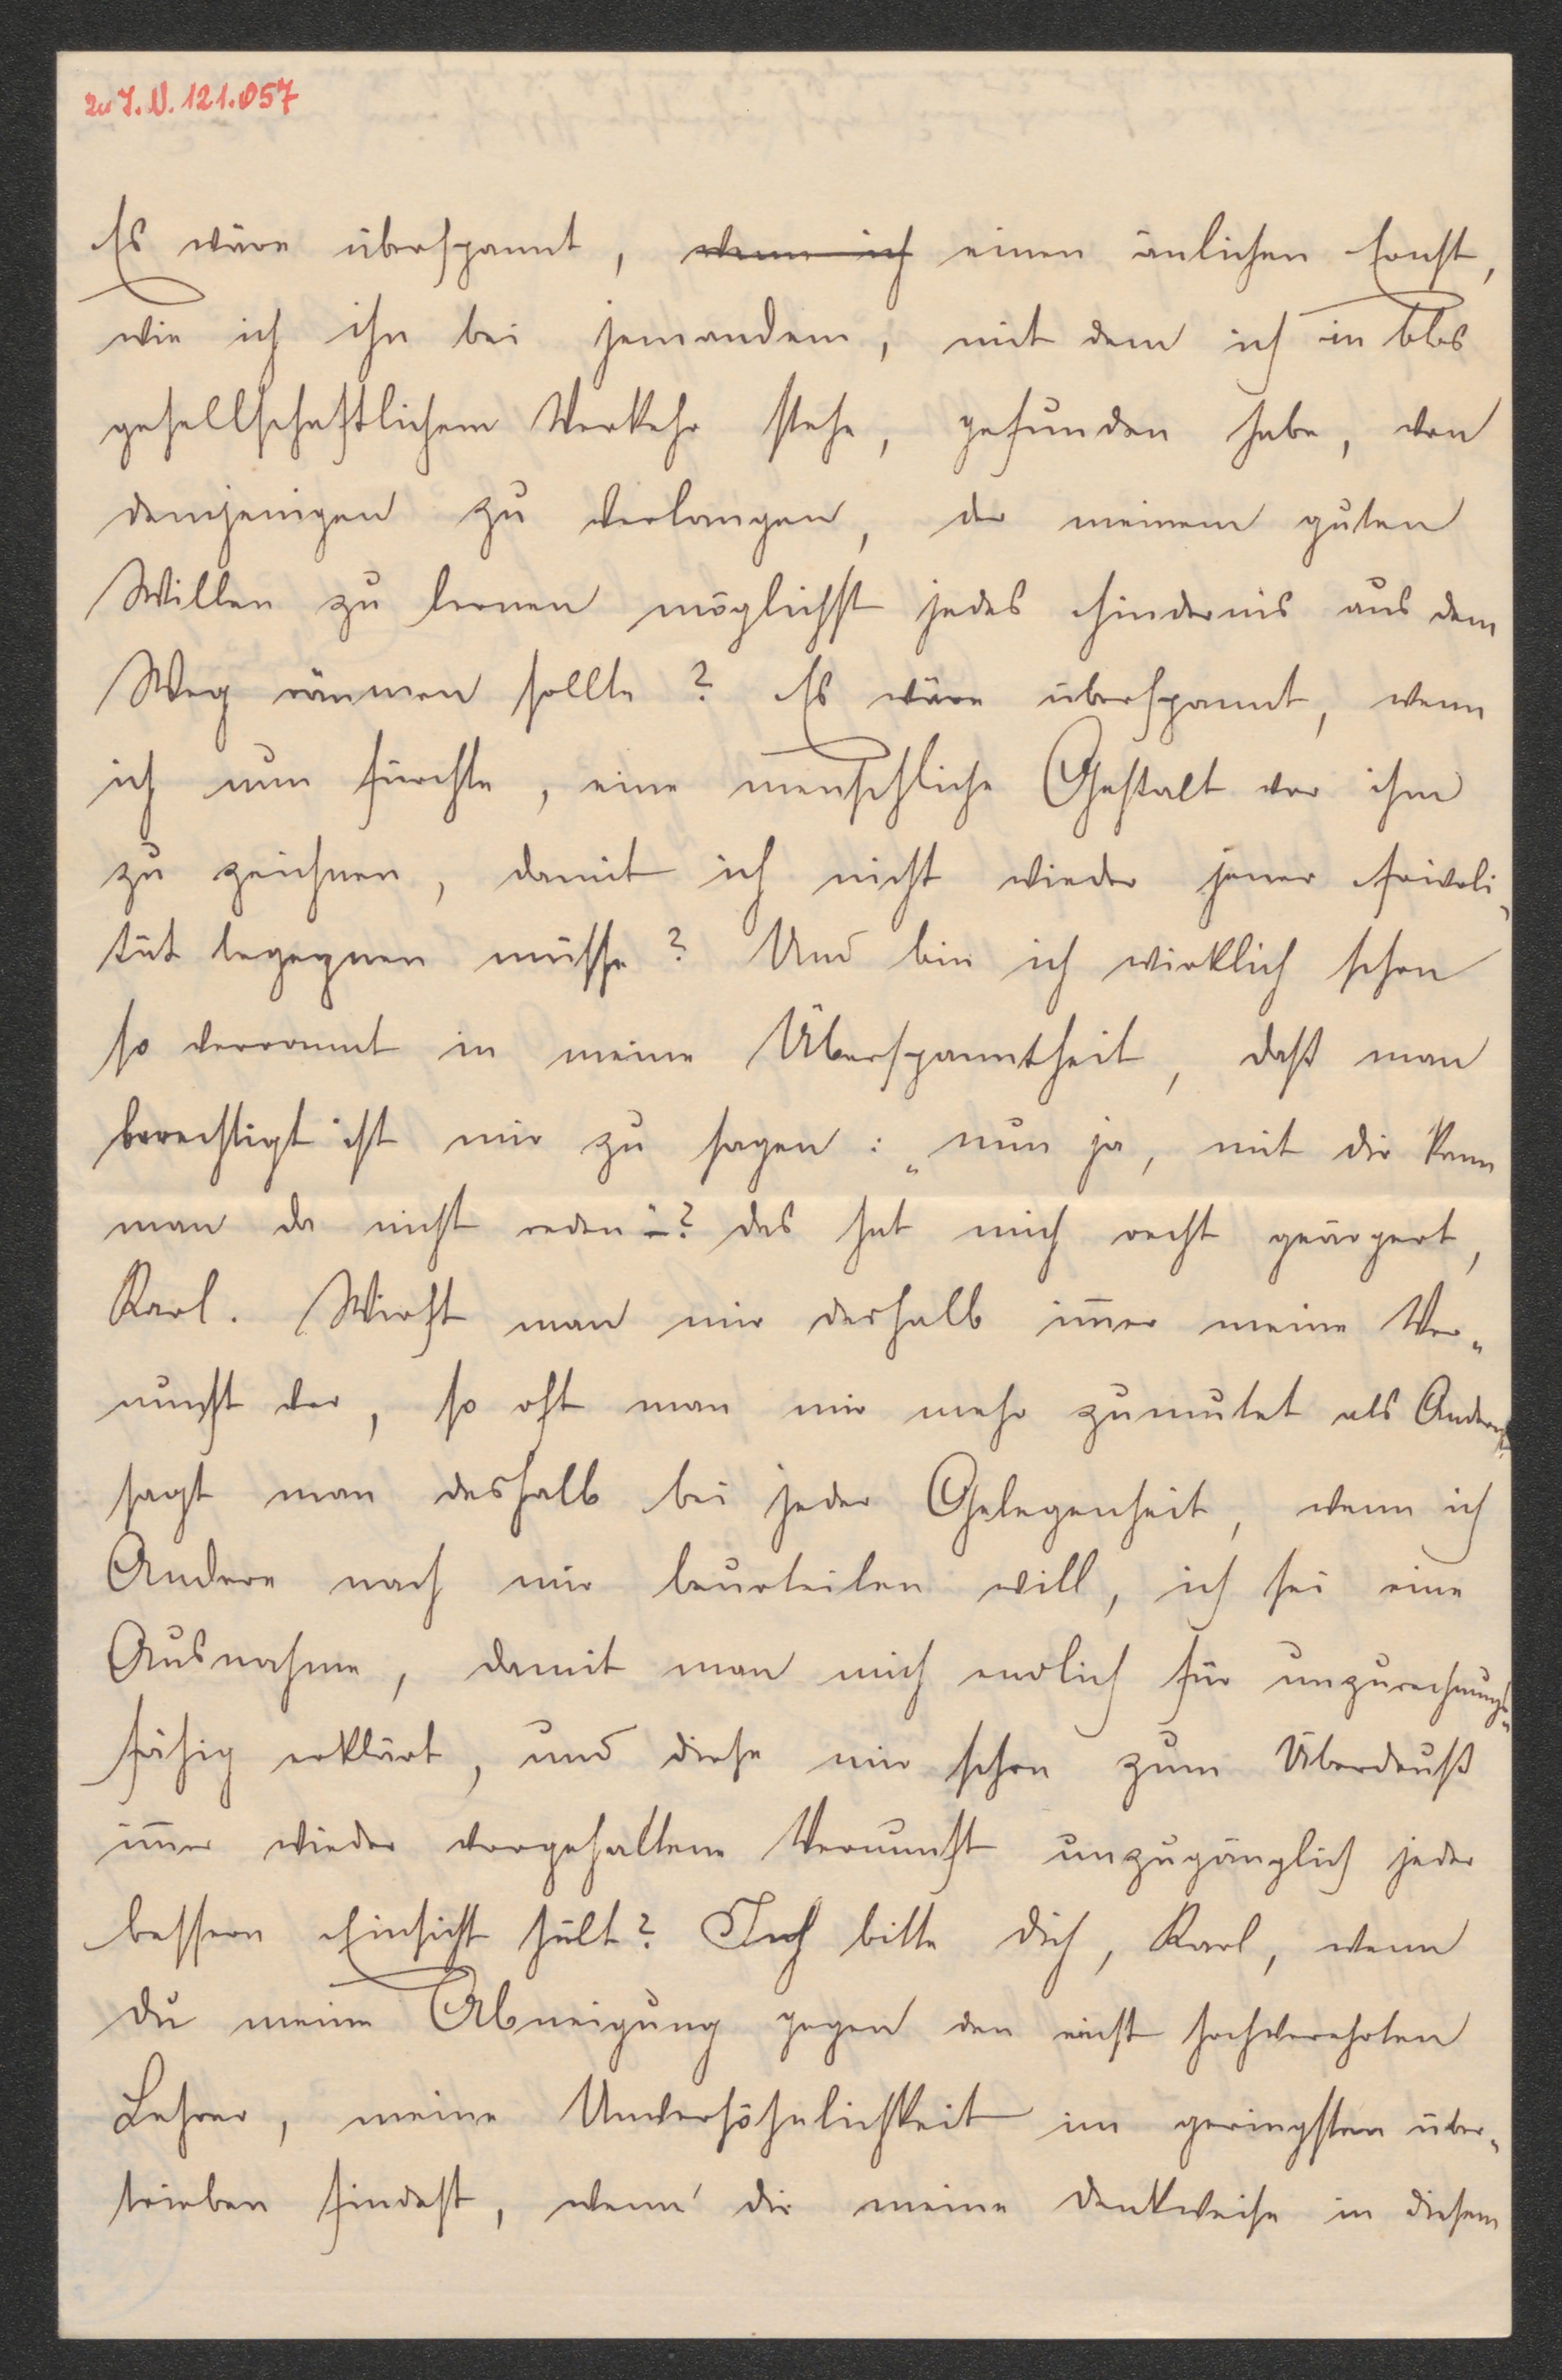 zu I.N. 121.057
Es wäre überspannt, wenn ich einen änlichen Ernst,
wie ich ihn bei jemandem, mit dem ich in blos
gesellschaftlichem Verkehr stehe, gefunden habe, von
demjenigen zu verlangen, der meinem guten
Willen zu lernen möglichst jedes Hindernis aus dem
Weg räumen sollte? Es wäre überspannt, wenn
ich nun fürchte, eine menschliche Gestalt vor ihm
zu zeichnen, damit ich nicht wieder jener Frivoli„
tät begegnen müsse? Und bin ich wirklich schon
so verrannt in meine Überspanntheit, daß man
berechtigt ist mir zu sagen: „nun ja, mit dir kann
man da nicht reden“–? das hat mich recht geärgert,
Karl. Wirft man mir deshalb im̄er meine Ver„
nunft vor, so oft man mir mehr zumutet als Andern,
sagt man deshalb bei jeder Gelegenheit, wenn ich
Andere nach mir beurteilen will, ich sei eine
Ausnahme, damit man mich endlich für unzurechnungs„
fähig erklärt, und diese mir schon zum Überdruß
im̄er wieder vorgehaltene Vernunft unzugänglich jeder
bessern Einsicht hält? Ich bitte dich, Karl, wenn
du meine Abneigung gegen den einst hochverehrten
Lehrer, meine Unversöhnlichkeit im geringsten über„
trieben findest, wenn dir meine Denkweise in diesem